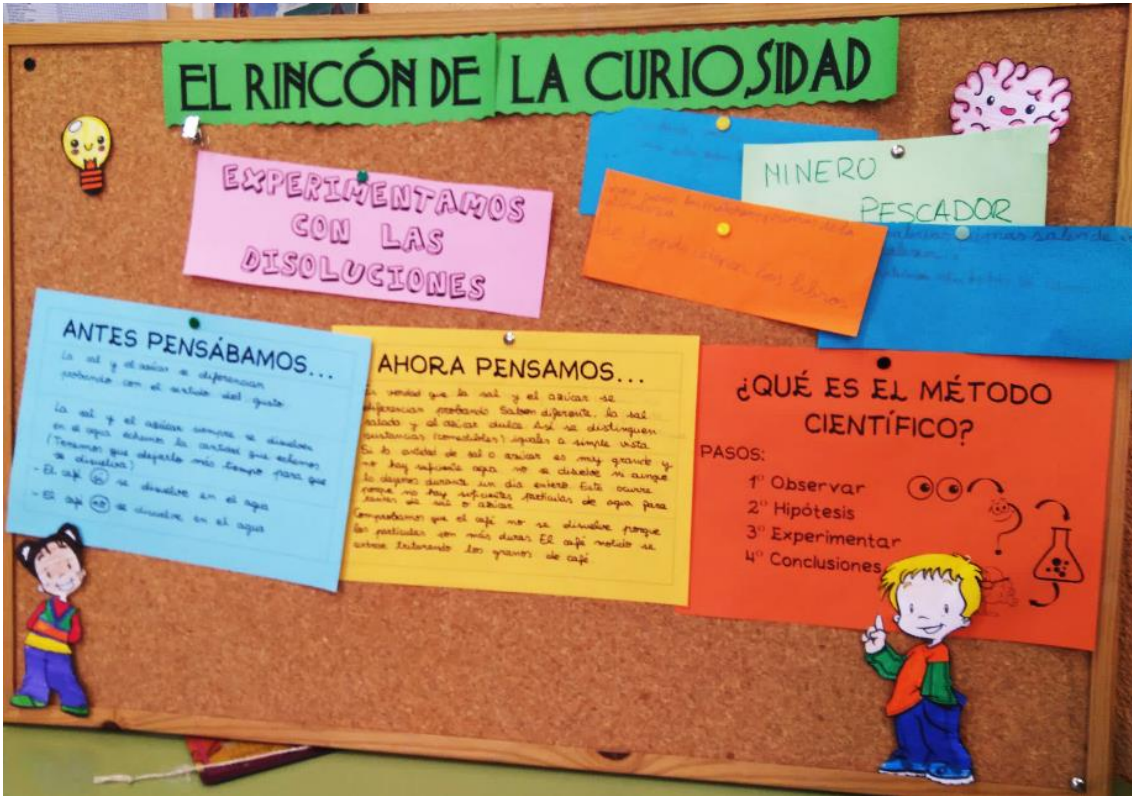 EL RINCÓN DE LA CURIOSIDAD
EXPERIMENTAMOS
CON LAS
DISOLUCIONES
MINERO
PESCADOR
De donde vienen los libros
ANTES PENSÁBAMOS...
La sal y el azúcar se diferencian
probando con el sentido del gusto
La sal y el azúcar siempre se disuelven
en el agua echemos la cantidad que echemos
(Tenemos que dejarlo más tiempo para que
se disuelva)
- El café sí se disuelve en el agua
- El café no se disuelve en el agua
AHORA PENSAMOS...
verdad que la sal y el azúcar se
diferencian probando Saben diferente, la sal
salada y el azúcar dulce Así se distinguen
sustancias (comestibles) iguales a simple vista.
Si la cantidad de sal o azúcar es muy grande y
no hay suficiente agua no se disuelve ni aunque
lo dejemos durante un día entero. Esto ocurre
porque no hay suficientes partículas de agua para
de sal o azúcar
Comprobamos que el café no se disuelve porque
las partículas son más duras El café molido se
extrae triturando los granos de café.
¿QUÉ ES EL MÉTODO
CIENTÍFICO?
PASOS:
1º Observar
2º Hipótesis
3º Experimentar
4º Conclusiones